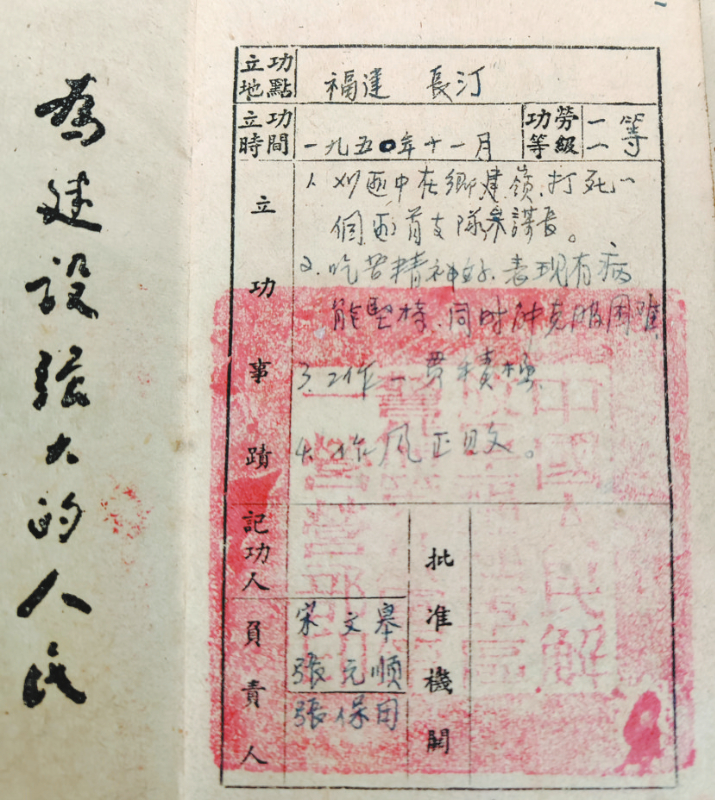 为建設强大的人民
立功地點 福建 長汀
立功時間 一九五〇年十一月 功勞等級 二等
立功事蹟
1. 刘匪中在鄉建嶺、打死一
個匪首支隊参謀長。
2. 吃苦精神好、表現有病
能堅持、同时能克服困难
3. 工作一貫積極
4. 作风正
記功人
負責人
宋文舉
張元順
張保田
批准機關
中國人民解